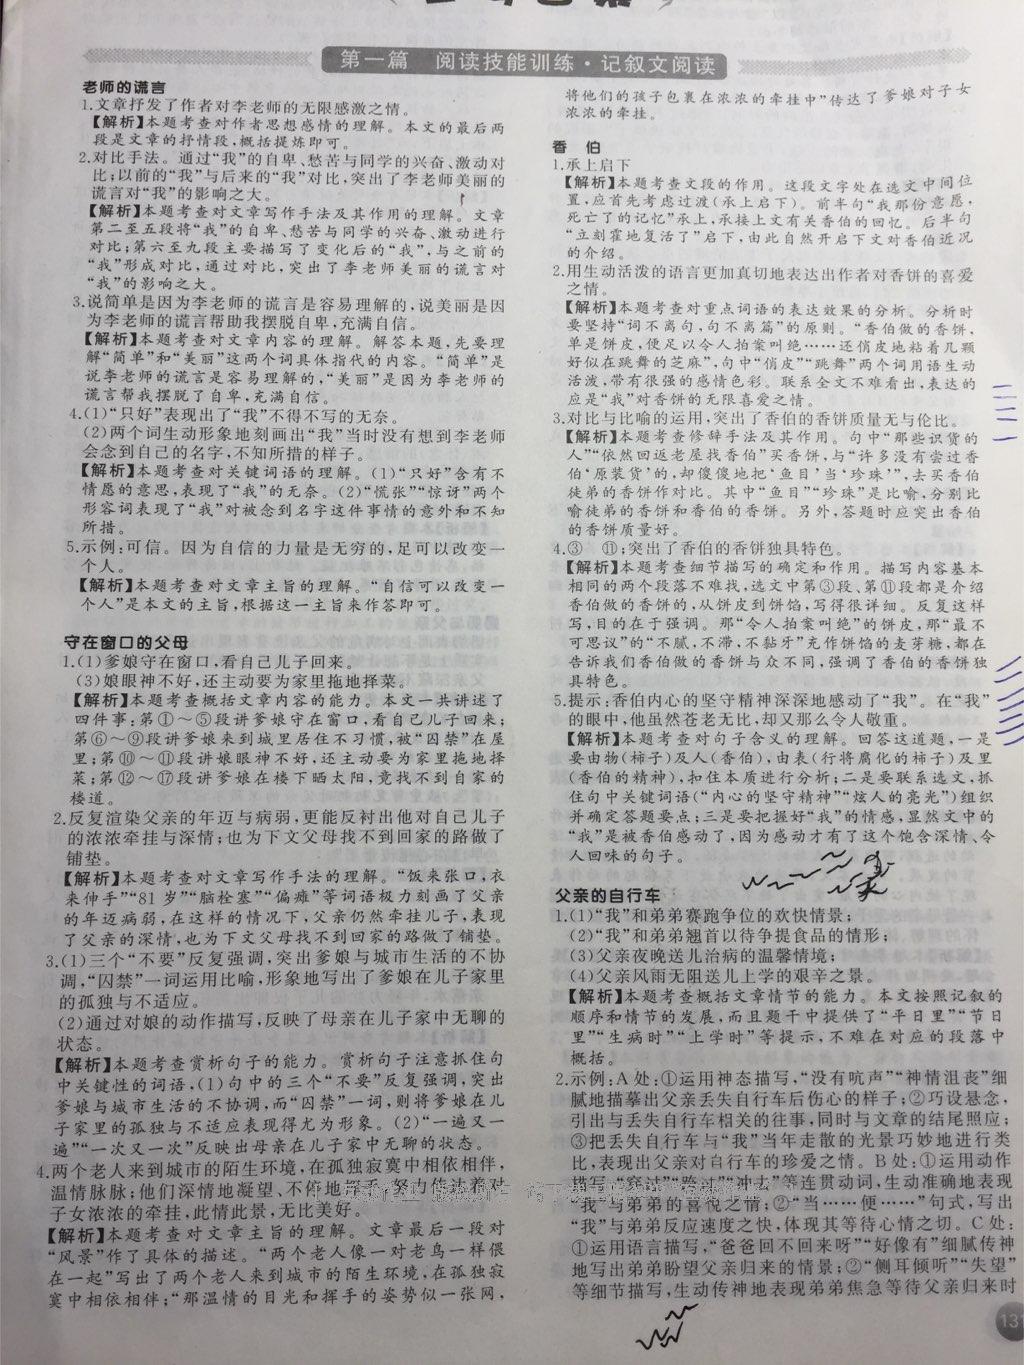 第一篇 阅读技能训练·记叙文阅读
老师的谎言
1.文章抒发了作者对李老师的无限感激之情。
【解析】本题考查对作者思想感情的理解。本文的最后两
段是文章的抒情段,概括提炼即可。
2.对比手法。通过“我”的自卑、愁苦与同学的兴奋、激动对
比;以前的“我”与后来的“我”对比,突出了李老师美丽的
谎言对“我”的影响之大。
【解析】本题考查对文章写作手法及其作用的理解。文章
第二至五段将“我”的自卑、愁苦与同学的兴奋、激动进行
对比;第六至九段主要描写了变化后的“我”,与之前的
“我”形成对比,通过对比,突出了李老师美丽的谎言对
“我”的影响之大。
3.说简单是因为李老师的谎言是容易理解的,说美丽是因
为李老师的谎言帮助我摆脱自卑,充满自信。
【解析】本题考查对文章内容的理解。解答本题,先要理
解“简单”和“美丽”这两个词具体指代的内容。“简单”是
说李老师的谎言是容易理解的,“美丽”是因为李老师的
谎言帮我摆脱了自卑,充满自信。
4.(1)“只好”表现出了“我”不得不写的无奈。
(2)两个词生动形象地刻画出“我”当时没有想到李老师
会念到自己的名字,不知所措的样子。
【解析】本题考查对关键词语的理解。(1)“只好”含有不
情愿的意思,表现了“我”的无奈。(2)“慌张”“惊讶”两个
形容词表现了“我”对被念到名字这件事情的意外和不知
所措。
5.示例:可信。因为自信的力量是无穷的,足可以改变一
个人。
【解析】本题考查对文章主旨的理解。“自信可以改变一
个人”是本文的主旨,根据这一主旨来作答即可。
守在窗口的父母
1.(1)爹娘守在窗口,看自己儿子回来。
(3)娘眼神不好,还主动要为家里拖地择菜。
【解析】本题考查概括文章内容的能力。本文一共讲述了
四件事:第①～⑤段讲爹娘守在窗口,看自己儿子回来;
第⑥～⑨段讲爹娘来到城里居住不习惯,被“囚禁”在屋
里;第⑩～⑪段讲娘眼神不好,还主动要为家里拖地择
菜;第⑫～⑰段讲爹娘在楼下晒太阳,竟找不到自家的
楼道。
2.反复渲染父亲的年迈与病弱,更能反衬出他对自己儿子
的浓浓牵挂与深情;也为下文父母找不到回家的路做了
铺垫。
【解析】本题考查对文章写作手法的理解。“饭来张口,衣
来伸手”“81岁”“脑栓塞”“偏瘫”等词语极力刻画了父亲
的年迈病弱,在这样的情况下,父亲仍然牵挂儿子,表现
了父亲的深情,也为下文父母找不到回家的路做了铺垫。
3.(1)三个“不要”反复强调,突出爹娘与城市生活的不协
调,“囚禁”一词运用比喻,形象地写出了爹娘在儿子家里
的孤独与不适应。
(2)通过对娘的动作描写,反映了母亲在儿子家中无聊的
状态。
【解析】本题考查赏析句子的能力。赏析句子注意抓住句
中关键性的词语,(1)句中的三个“不要”反复强调,突出
爹娘与城市生活的不协调,而“囚禁”一词,则将爹娘在儿
子家里的孤独与不适应表现得尤为形象。(2)“一遍又一
遍”“一次又一次”反映出母亲在儿子家中无聊的状态。
4.两个老人来到城市的陌生环境,在孤独寂寞中相依相伴,
温情脉脉;他们深情地凝望、不停地挥手,努力传达着对
子女浓浓的牵挂,此情此景,无比美好。
【解析】本题考查对文章主旨的理解。文章最后一段对
“风景”作了具体的描述。“两个老人像一对老鸟一样偎
在一起”写出了两个老人来到城市的陌生环境,在孤独寂
寞中相依相伴;“那温情的目光和挥手的姿势似一张网,
将他们的孩子包裹在浓浓的牵挂中”传达了爹娘对子女
浓浓的牵挂。
香 伯
1.承上启下
【解析】本题考查文段的作用。这段文字处在选文中间位
置,应首先考虑过渡(承上启下)。前半句“我那份意愿,
死亡了的记忆”承上,承接上文有关香伯的回忆。后半句
“立刻霍地复活了”启下,由此自然开启下文对香伯近况
的介绍。
2.用生动活泼的语言更加真切地表达出作者对香饼的喜爱
之情。
【解析】本题考查对重点词语的表达效果的分析。分析时
要坚持“词不离句,句不离篇”的原则。“香伯做的香饼,
单是饼皮,便足以令人拍案叫绝……还俏皮地粘着几颗
好似在跳舞的芝麻”,句中“俏皮”“跳舞”两个词用语生动
活泼,带有很强的感情色彩。联系全文不难看出,表达的
应是“我”对香饼的无限喜爱之情。
3.对比与比喻的运用,突出了香伯的香饼质量无与伦比。
【解析】本题考查修辞手法及其作用。句中“那些识货的
人”“依然回返老屋找香伯”买香饼,与“许多没有尝过香
伯‘原装货’的,却傻傻地把‘鱼目’当‘珍珠’”,去买香伯
徒弟的香饼作对比。其中“鱼目”“珍珠”是比喻,分别比
喻徒弟的香饼和香伯的香饼。另外,答题时应突出香伯
的香饼质量好。
4.③ ⑪;突出了香伯的香饼独具特色。
【解析】本题考查细节描写的确定和作用。描写内容基本
相同的两个段落不难找,选文中第③段、第⑪段都是介绍
香伯做的香饼的,从饼皮到饼馅,写得很详细。反复这样
写,目的在于强调。那“令人拍案叫绝”的饼皮,那“最不
可思议”的“不腻,不滞,不黏牙”充作饼馅的麦芽糖,都在
告诉我们香伯做的香饼与众不同,强调了香伯的香饼独
具特色。
5.提示:香伯内心的坚守精神深深地感动了“我”。在“我”
的眼中,他虽然苍老无比,却又那么令人敬重。
【解析】本题考查对句子含义的理解。回答这道题,一是
要由物(柿子)及人(香伯),由表(行将腐化的柿子)及里
(香伯的精神),扣住本质进行分析;二是要联系选文,抓
住句中关键词语(“内心的坚守精神”“炫人的亮光”)组织
并确定答题要点;三是要把握好“我”的情感,显然文中的
“我”是被香伯感动了,因为感动才有了这个饱含深情、令
人回味的句子。
父亲的自行车
1.(1)“我”和弟弟赛跑争位的欢快情景;
(2)“我”和弟弟翘首以待争提食品的情形;
(3)父亲夜晚送儿治病的温馨情境;
(4)父亲风雨无阻送儿上学的艰辛之景。
【解析】本题考查概括文章情节的能力。本文按照记叙的
顺序和情节的发展,而且题干中提供了“平日里”“节日
里”“生病时”“上学时”等提示,不难在对应的段落中
概括。
2.示例:A处:①运用神态描写,“没有吭声”“神情沮丧”细
腻地描摹出父亲丢失自行车后伤心的样子;②巧设悬念,
引出与丢失自行车相关的往事,同时与文章的结尾照应;
③把丢失自行车与“我”当年走散的光景巧妙地进行类
比,表现出父亲对自行车的珍爱之情。B处:①运用动作
描写,“穿过”“跨过”“冲去”等连贯动词,生动准确地表现
“我”与弟弟的喜悦之情;②“当……便……”句式,写出
“我”与弟弟反应速度之快,体现其等待心情之切。C处:
①运用语言描写,“爸爸回不回来呀”“好像有”细腻传神
地写出弟弟盼望父亲归来的情景;②“侧耳倾听”“失望”
等细节描写,生动传神地表现弟弟焦急等待父亲归来时
131